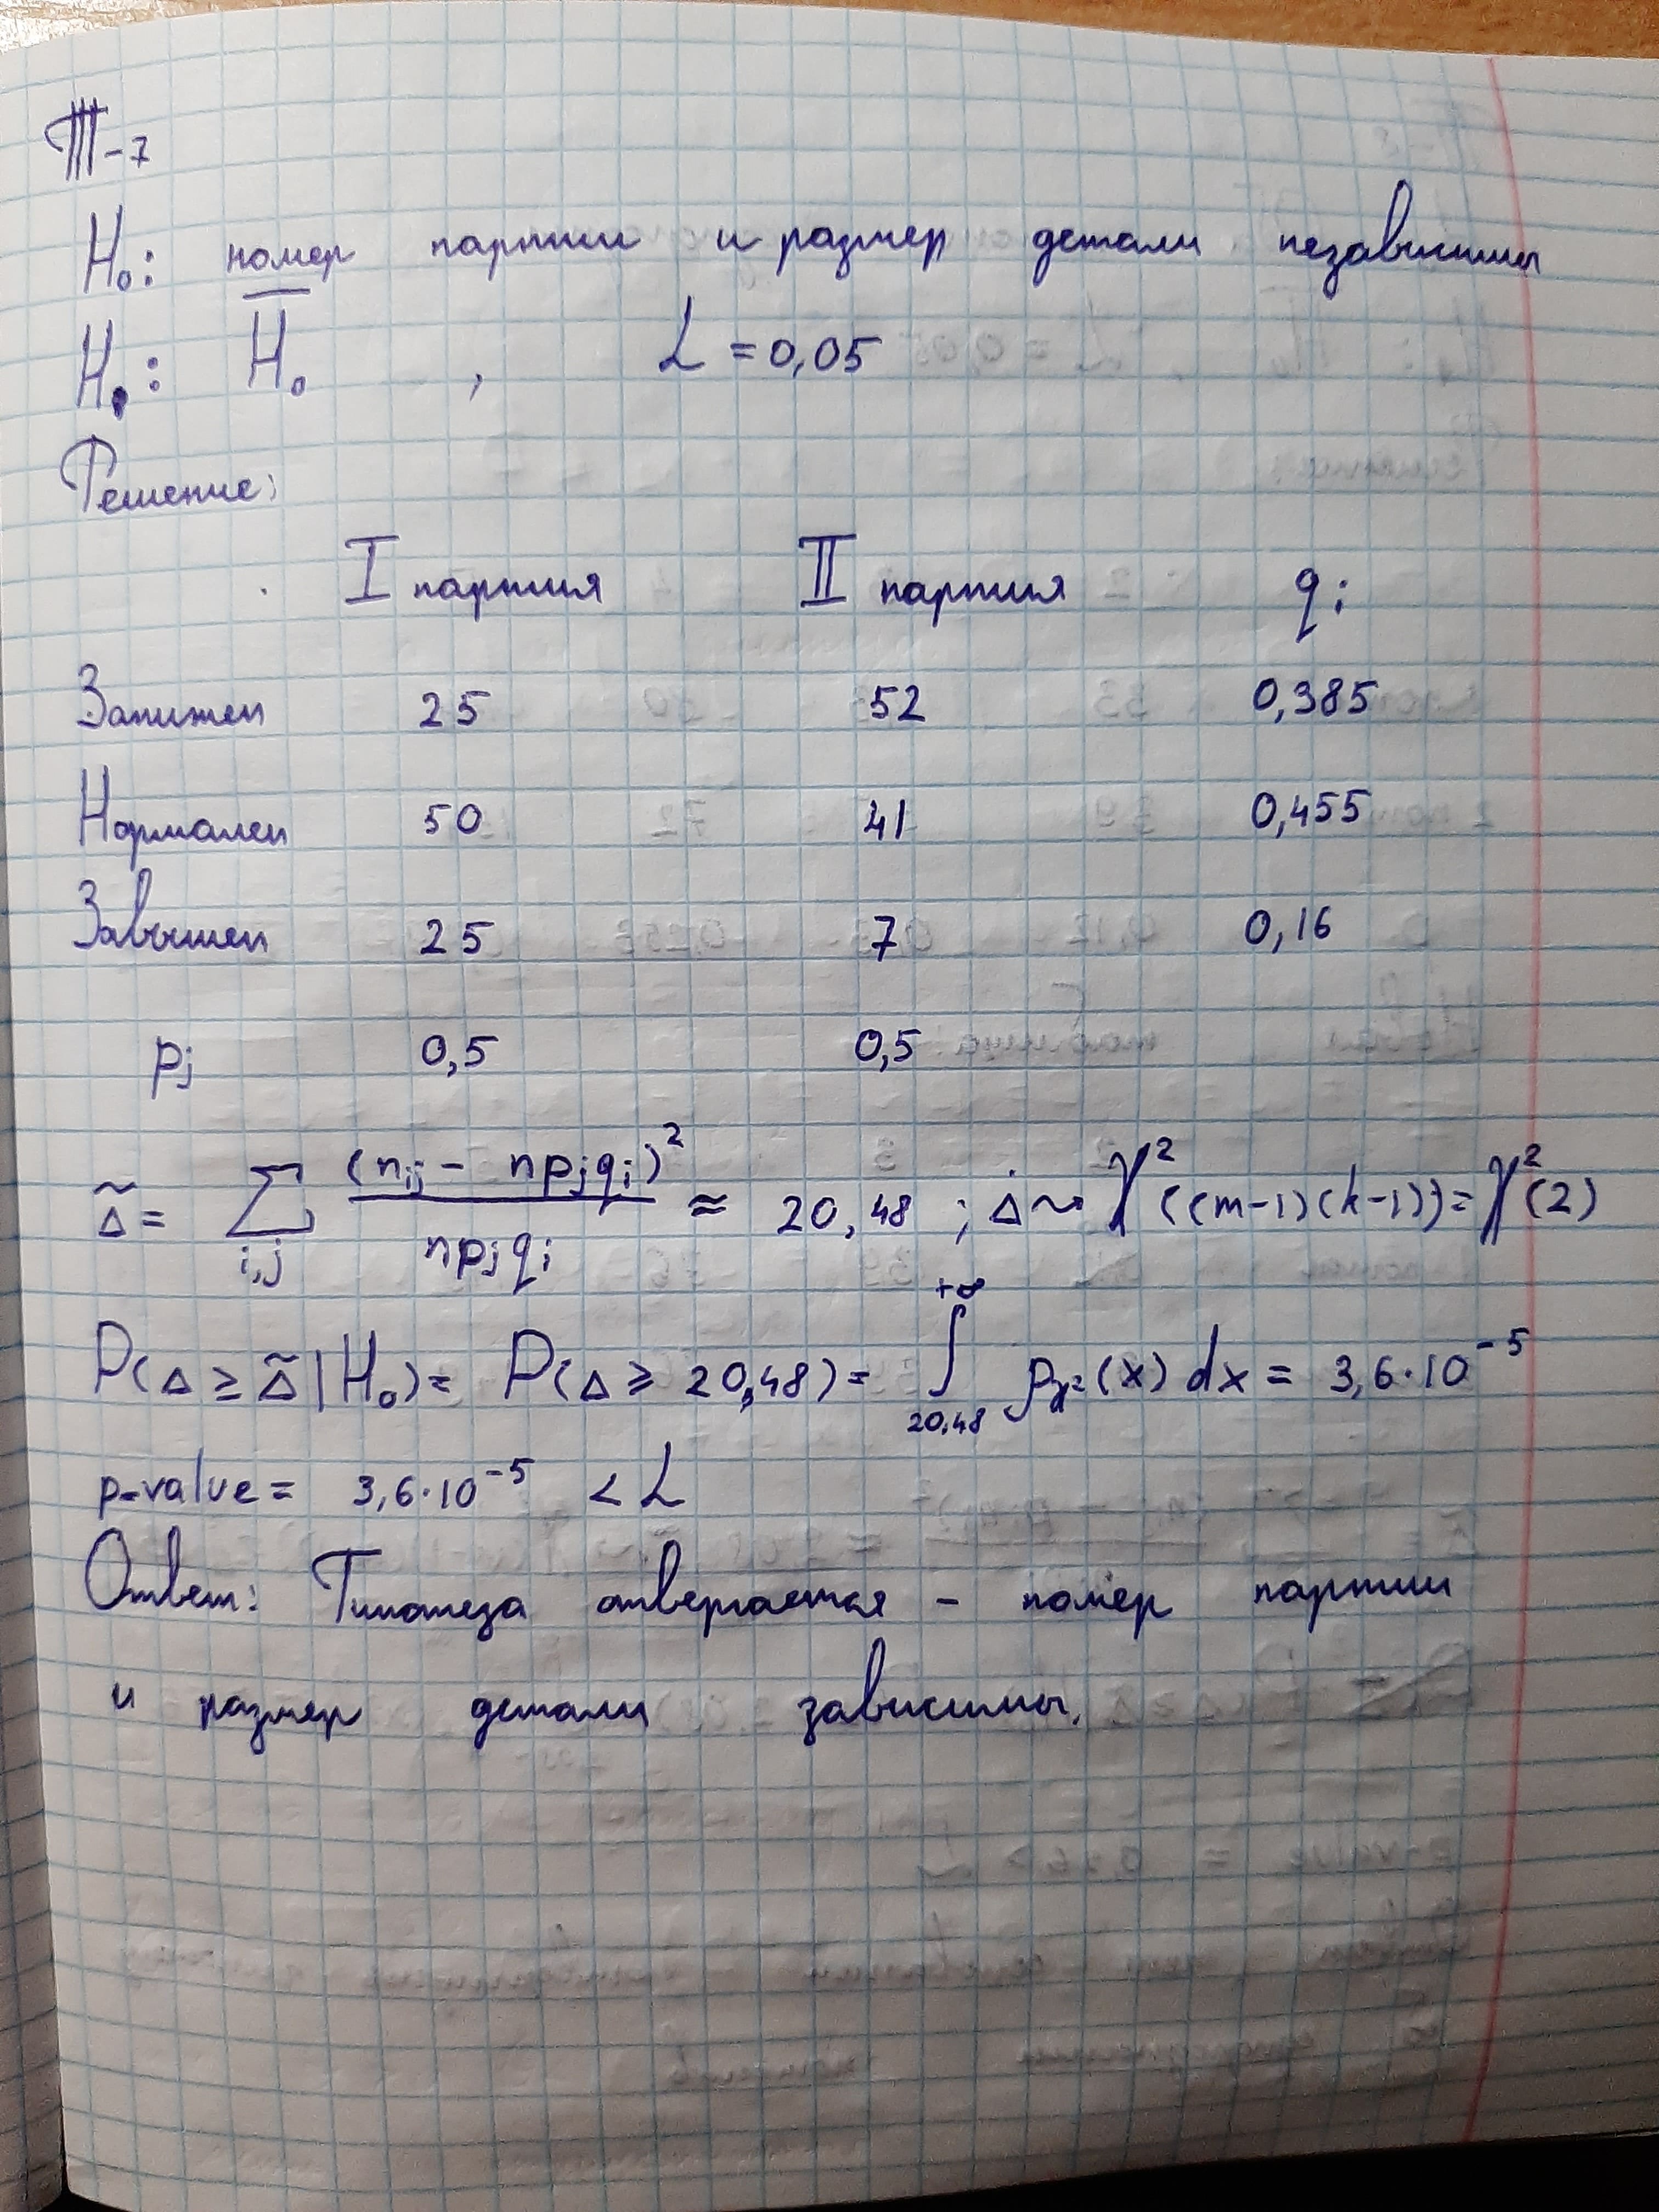 Т-7
H₀: номер партии и размер детали независимы
H₁: H̅₀ , α = 0,05
Решение:
I партия II партия qᵢ
Занижен 25 52 0,385
Нормален 50 41 0,455
Завышен 25 7 0,16
pⱼ 0,5 0,5
Δ̃ = ∑ᵢ,ⱼ (nᵢⱼ - npⱼqᵢ)² / npⱼqᵢ ≈ 20,48 ; Δ ~ χ²((m-1)(k-1)) = χ²(2)
P(Δ ≥ Δ̃ | H₀) = P(Δ ≥ 20,48) = ∫₂₀,₄₈^+∞ p_χ²(x) dx = 3,6·10⁻⁵
p-value = 3,6·10⁻⁵ < α
Ответ: Гипотеза отвергается - номер партии
и размер детали зависимы.